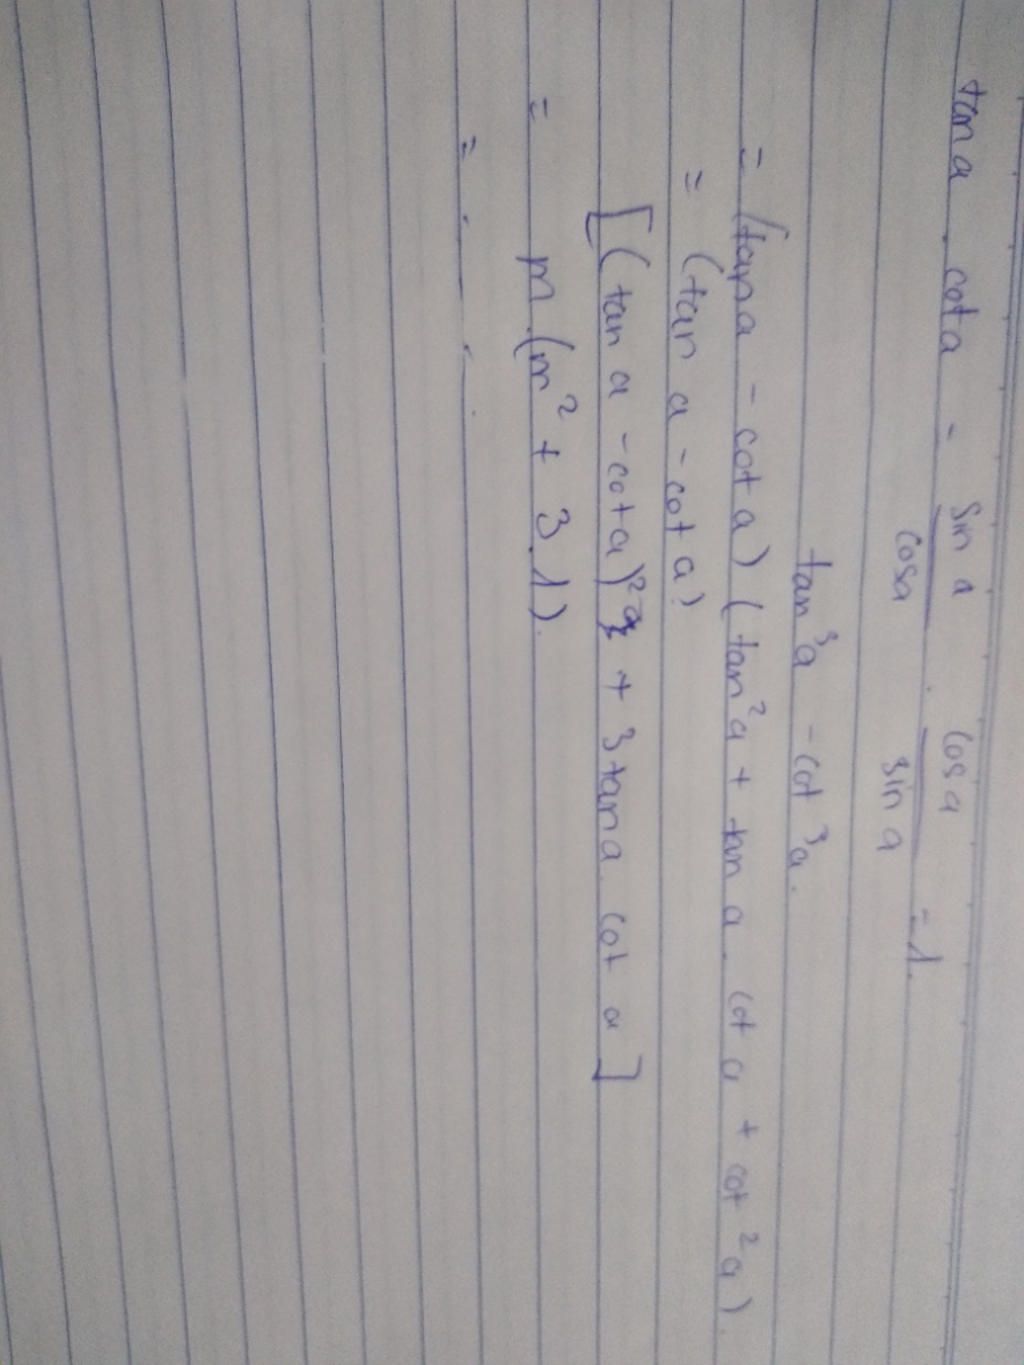 tan a . cot a = sin a / cos a . cos a / sin a = 1.
tan³a - cot³a.
= (tan a - cot a) (tan²a + tan a . cot a + cot²a).
= (tan a - cot a)
[(tan a - cot a)² + 3 tan a cot a]
= m (m² + 3.1).
= . . .